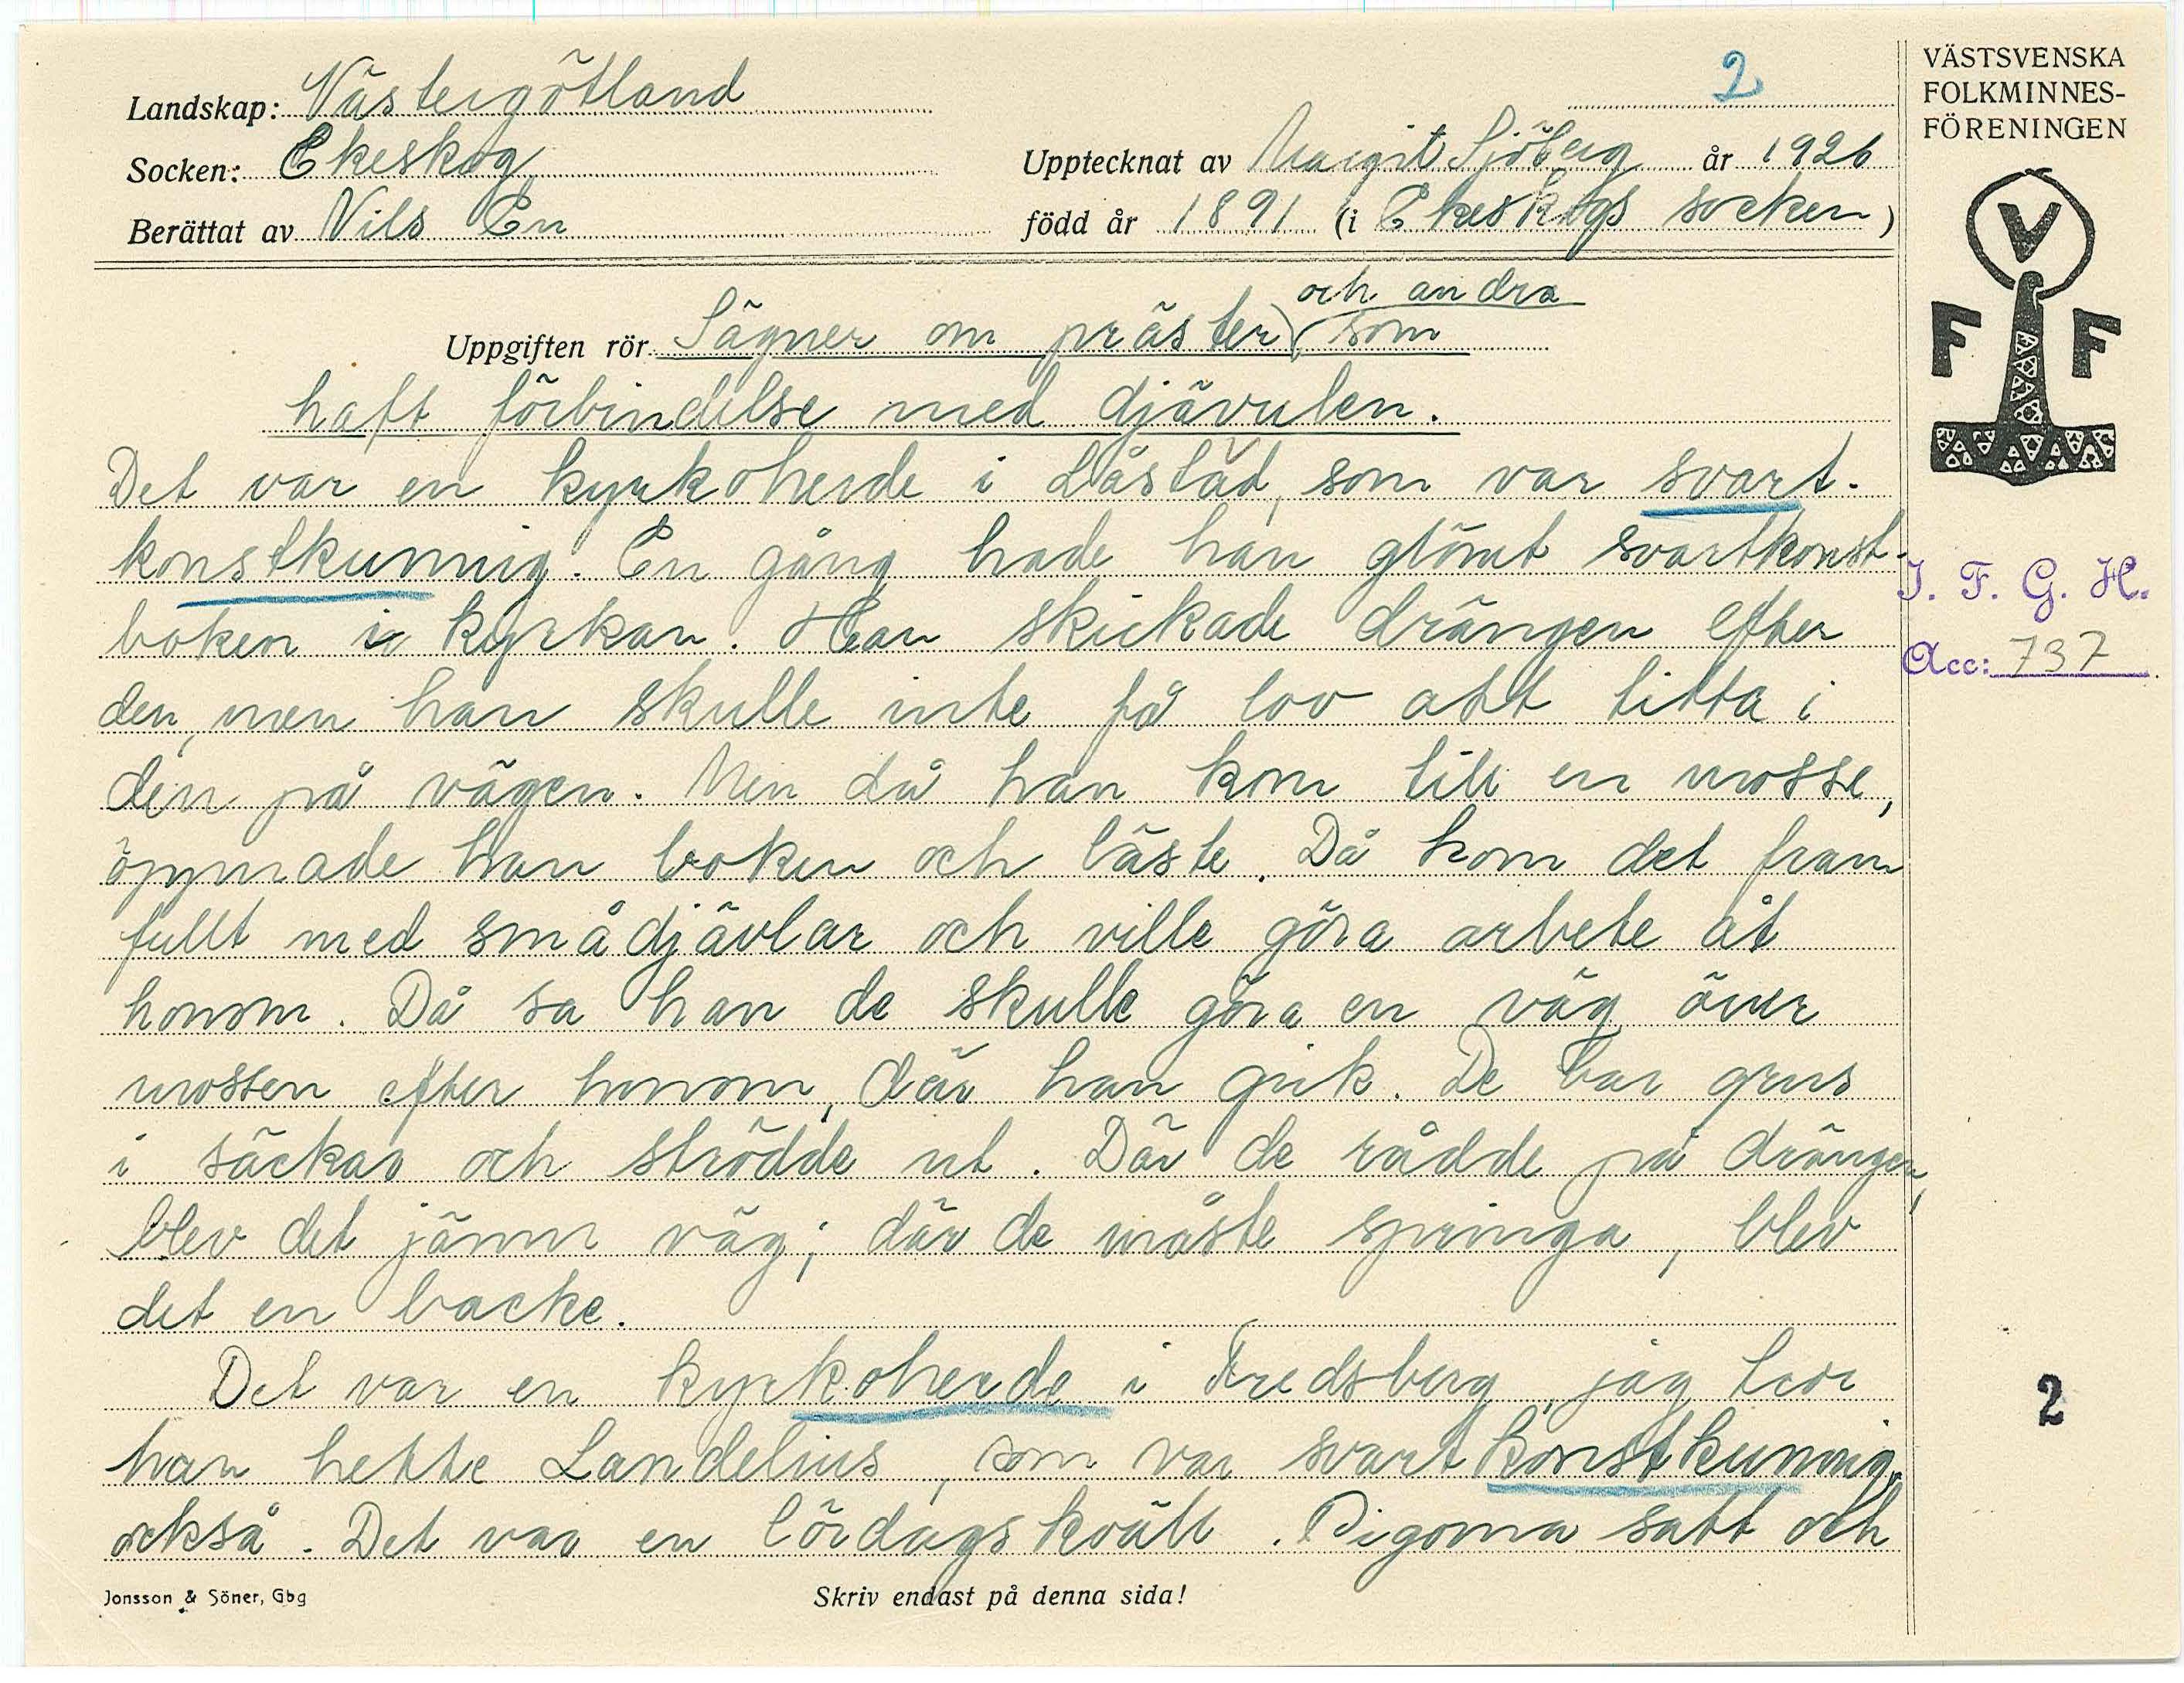 2
VÄSTSVENSKA
FOLKMINNES-
FÖRENINGEN
Landskap: Västergötland
Socken: Ekeskog
Upptecknat av Margit Sjöberg år 1926
Berättat av Nils En
född år 1891 (i Ekeskogs socken)
V
F F
och andra
Uppgiften rör Sägner om präster som
haft förbindelse med djävulen.
Det var en kyrkoherde i Låstad, som var svart-
konstkunnig. En gång hade han glömt svartkonst-
boken i kyrkan. Han skickade drängen efter
den, men han skulle inte få lov att titta i
den på vägen. Men då han kom till en mosse,
öppnade han boken och läste. Då kom det fram
fullt med smådjävlar och ville göra arbete åt
honom. Då sa han de skulle göra en väg över
mossen efter honom, där han gick. De bar grus
i säckar och strödde ut. Där de rådde på drängen,
blev det jämn väg; där de måste springa, blev
det en backe.
Det var en kyrkoherde i Fredsberg, jag tror
han hette Landelius, som var svartkonstkunnig
också. Det var en lördagskväll. Pigorna satt och
I. F. G. H.
Acc: 737
2
Jonsson & Söner, Gbg
Skriv endast på denna sida!